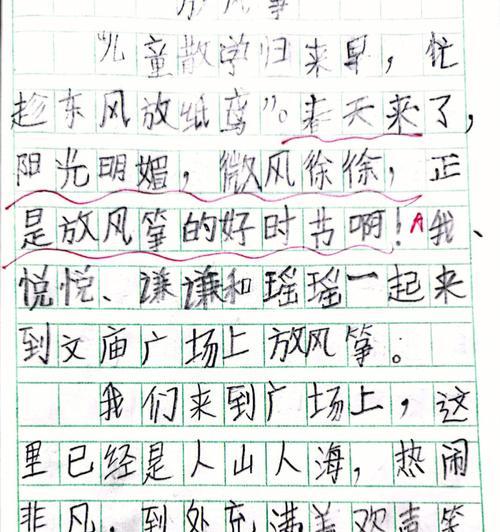 放风筝
“儿童散学归来早，忙
趁东风放纸鸢”。春天来了，
阳光明媚，微风徐徐，正
是放风筝的好时节啊！我、
悦悦、谦谦和瑶瑶一起来
到文庙广场上放风筝。
我们来到广场上，这
里已经是人山人海，热闹
非凡，到处充满着欢声笑